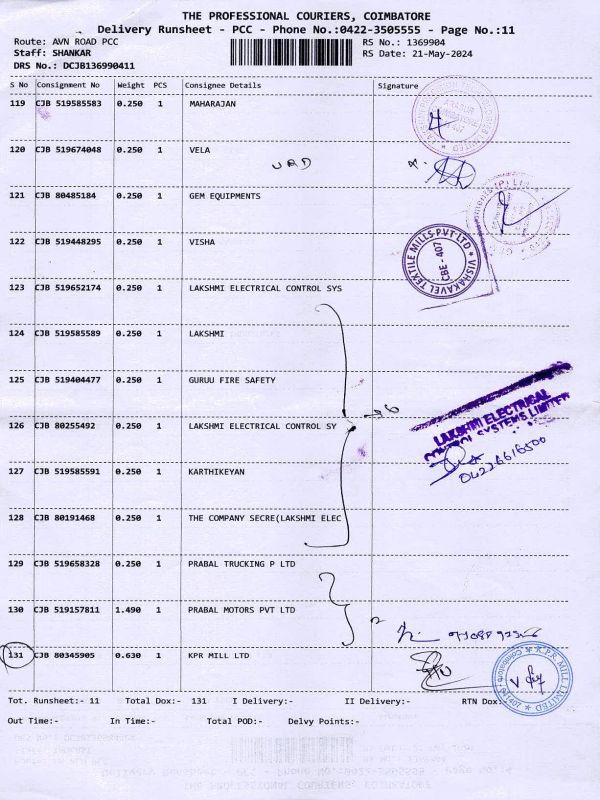 THE PROFESSIONAL COURIERS, COIMBATORE
Delivery Runsheet - PCC - Phone No.:0422-3505555 - Page No.:11
Route: AVN ROAD PCC RS No.: 1369904
Staff: SHANKAR RS Date: 21-May-2024
DRS No.: DCJB136990411
S No Consignment No Weight PCS Consignee Details Signature
119 CJB 519585583 0.250 1 MAHARAJAN
120 CJB 519674048 0.250 1 VELA
URD
121 CJB 80485184 0.250 1 GEM EQUIPMENTS
122 CJB 519448295 0.250 1 VISHA
VISHAKAVEL TEXTILE MILLS PVT LTD
CBE - 407
123 CJB 519652174 0.250 1 LAKSHMI ELECTRICAL CONTROL SYS
124 CJB 519585589 0.250 1 LAKSHMI
125 CJB 519404477 0.250 1 GURUU FIRE SAFETY
LAKSHMI ELECTRICAL
CONTROL SYSTEMS LIMITED
126 CJB 80255492 0.250 1 LAKSHMI ELECTRICAL CONTROL SY
04226616500
127 CJB 519585591 0.250 1 KARTHIKEYAN
128 CJB 80191468 0.250 1 THE COMPANY SECRE(LAKSHMI ELEC
129 CJB 519658328 0.250 1 PRABAL TRUCKING P LTD
130 CJB 519157811 1.490 1 PRABAL MOTORS PVT LTD
131 CJB 80345905 0.630 1 KPR MILL LTD
K.P.R. MILL LIMITED
Tot. Runsheet:- 11 Total Dox:- 131 I Delivery:- II Delivery:- RTN Dox:-
Out Time:- In Time:- Total POD:- Delvy Points:-